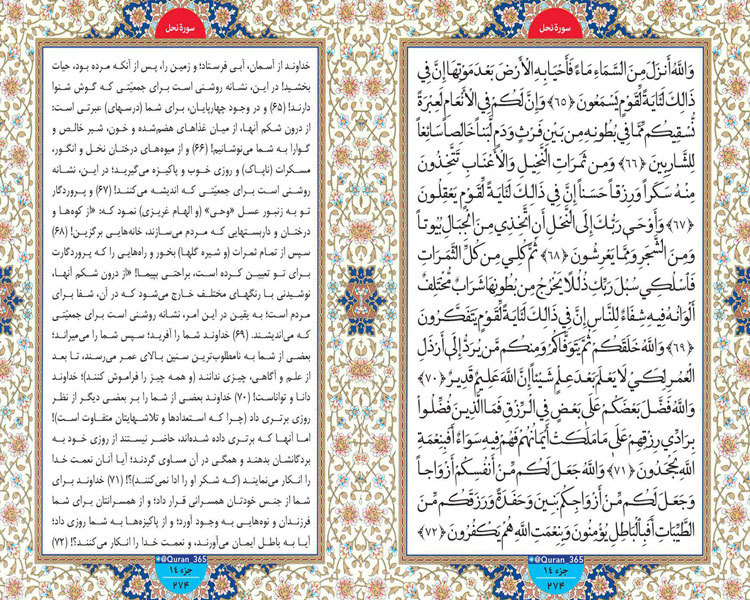 سورهٔ نحل
وَاللَّهُ أَنزَلَ مِنَ السَّمَاءِ مَاءً فَأَحْيَا بِهِ الأَرْضَ بَعْدَ مَوْتِهَا إِنَّ فِي
ذَالِكَ لَايَةً لِّقَوْمٍ يَسْمَعُونَ ﴿٦٥﴾ وَإِنَّ لَكُمْ فِي الأَنْعَامِ لَعِبْرَةً
نُّسْقِيكُم مِّمَّا فِي بُطُونِهِ مِن بَيْنِ فَرْثٍ وَدَمٍ لَّبَنًا خَالِصًا سَائِغًا
لِلشَّارِبِينَ ﴿٦٦﴾ وَمِن ثَمَرَاتِ النَّخِيلِ وَالأَعْنَابِ تَتَّخِذُونَ
مِنْهُ سَكَرًا وَرِزْقًا حَسَنًا إِنَّ فِي ذَالِكَ لَايَةً لِّقَوْمٍ يَعْقِلُونَ
﴿٦٧﴾ وَأَوْحَى رَبُّكَ إِلَى النَّحْلِ أَنِ اتَّخِذِي مِنَ الْجِبَالِ بُيُوتًا
وَمِنَ الشَّجَرِ وَمِمَّا يَعْرِشُونَ ﴿٦٨﴾ ثُمَّ كُلِي مِن كُلِّ الثَّمَرَاتِ
فَاسْلُكِي سُبُلَ رَبِّكِ ذُلُلًا يَخْرُجُ مِن بُطُونِهَا شَرَابٌ مُّخْتَلِفٌ
أَلْوَانُهُ فِيهِ شِفَاءٌ لِلنَّاسِ إِنَّ فِي ذَالِكَ لَايَةً لِّقَوْمٍ يَتَفَكَّرُونَ
﴿٦٩﴾ وَاللَّهُ خَلَقَكُمْ ثُمَّ يَتَوَفَّاكُمْ وَمِنكُم مَّن يُرَدُّ إِلَى أَرْذَلِ
الْعُمُرِ لِكَيْ لَا يَعْلَمَ بَعْدَ عِلْمٍ شَيْئًا إِنَّ اللَّهَ عَلِيمٌ قَدِيرٌ ﴿٧٠﴾
وَاللَّهُ فَضَّلَ بَعْضَكُمْ عَلَى بَعْضٍ فِي الْرِّزْقِ فَمَا الَّذِينَ فُضِّلُوا
بِرَادِّي رِزْقِهِمْ عَلَى مَا مَلَكَتْ أَيْمَانُهُمْ فَهُمْ فِيهِ سَوَاءٌ أَفَبِنِعْمَةِ
اللَّهِ يَجْحَدُونَ ﴿٧١﴾ وَاللَّهُ جَعَلَ لَكُم مِّنْ أَنفُسِكُمْ أَزْوَاجًا
وَجَعَلَ لَكُم مِّنْ أَزْوَاجِكُم بَنِينَ وَحَفَدَةً وَرَزَقَكُم مِّنَ
الطَّيِّبَاتِ أَفَبِالْبَاطِلِ يُؤْمِنُونَ وَبِنِعْمَتِ اللَّهِ هُمْ يَكْفُرُونَ ﴿٧٢﴾
@Quran_365
جزء ١٤
٢٧٤
سورهٔ نحل
خداوند از آسمان، آبی فرستاد؛ و زمین را، پس از آنکه مرده بود، حیات
بخشید! در این، نشانه روشنی است برای جمعیّتی که گوش شنوا
دارند! (۶۵) و در وجود چهارپایان، برای شما (درسهای) عبرتی است:
از درون شکم آنها، از میان غذاهای هضم‌شده و خون، شیر خالص و
گوارا به شما می‌نوشانیم! (۶۶) و از میوه‌های درختان نخل و انگور،
مسکرات (ناپاک) و روزی خوب و پاکیزه می‌گیرید؛ در این، نشانه
روشنی است برای جمعیّتی که اندیشه می‌کنند! (۶۷) و پروردگار
تو به زنبور عسل «وحی» (و الهام غریزی) نمود که: «از کوه‌ها و
درختان و داربستهایی که مردم می‌سازند، خانه‌هایی برگزین! (۶۸)
سپس از تمام ثمرات (و شیره گلها) بخور و راه‌هایی را که پروردگارت
برای تو تعیین کرده است، براحتی بپیما! «از درون شکم آنها،
نوشیدنی با رنگهای مختلف خارج می‌شود که در آن، شفا برای
مردم است؛ به یقین در این امر، نشانه روشنی است برای جمعیّتی
که می‌اندیشند. (۶۹) خداوند شما را آفرید؛ سپس شما را می‌میراند؛
بعضی از شما به نامطلوب‌ترین سنین بالای عمر می‌رسند، تا بعد
از علم و آگاهی، چیزی ندانند (و همه چیز را فراموش کنند)؛ خداوند
دانا و تواناست! (۷۰) خداوند بعضی از شما را بر بعضی دیگر از نظر
روزی برتری داد (چرا که استعدادها و تلاشهایتان متفاوت است)!
اما آنها که برتری داده شده‌اند، حاضر نیستند از روزی خود به
بردگانشان بدهند و همگی در آن مساوی گردند؛ آیا آنان نعمت خدا
را انکار می‌نمایند (که شکر او را ادا نمی‌کنند)؟! (۷۱) خداوند برای
شما از جنس خودتان همسرانی قرار داد؛ و از همسرانتان برای شما
فرزندان و نوه‌هایی به وجود آورد؛ و از پاکیزه‌ها به شما روزی داد؛
آیا به باطل ایمان می‌آورند، و نعمت خدا را انکار می‌کنند؟! (۷۲)
@Quran_365
جزء ١٤
٢٧٤